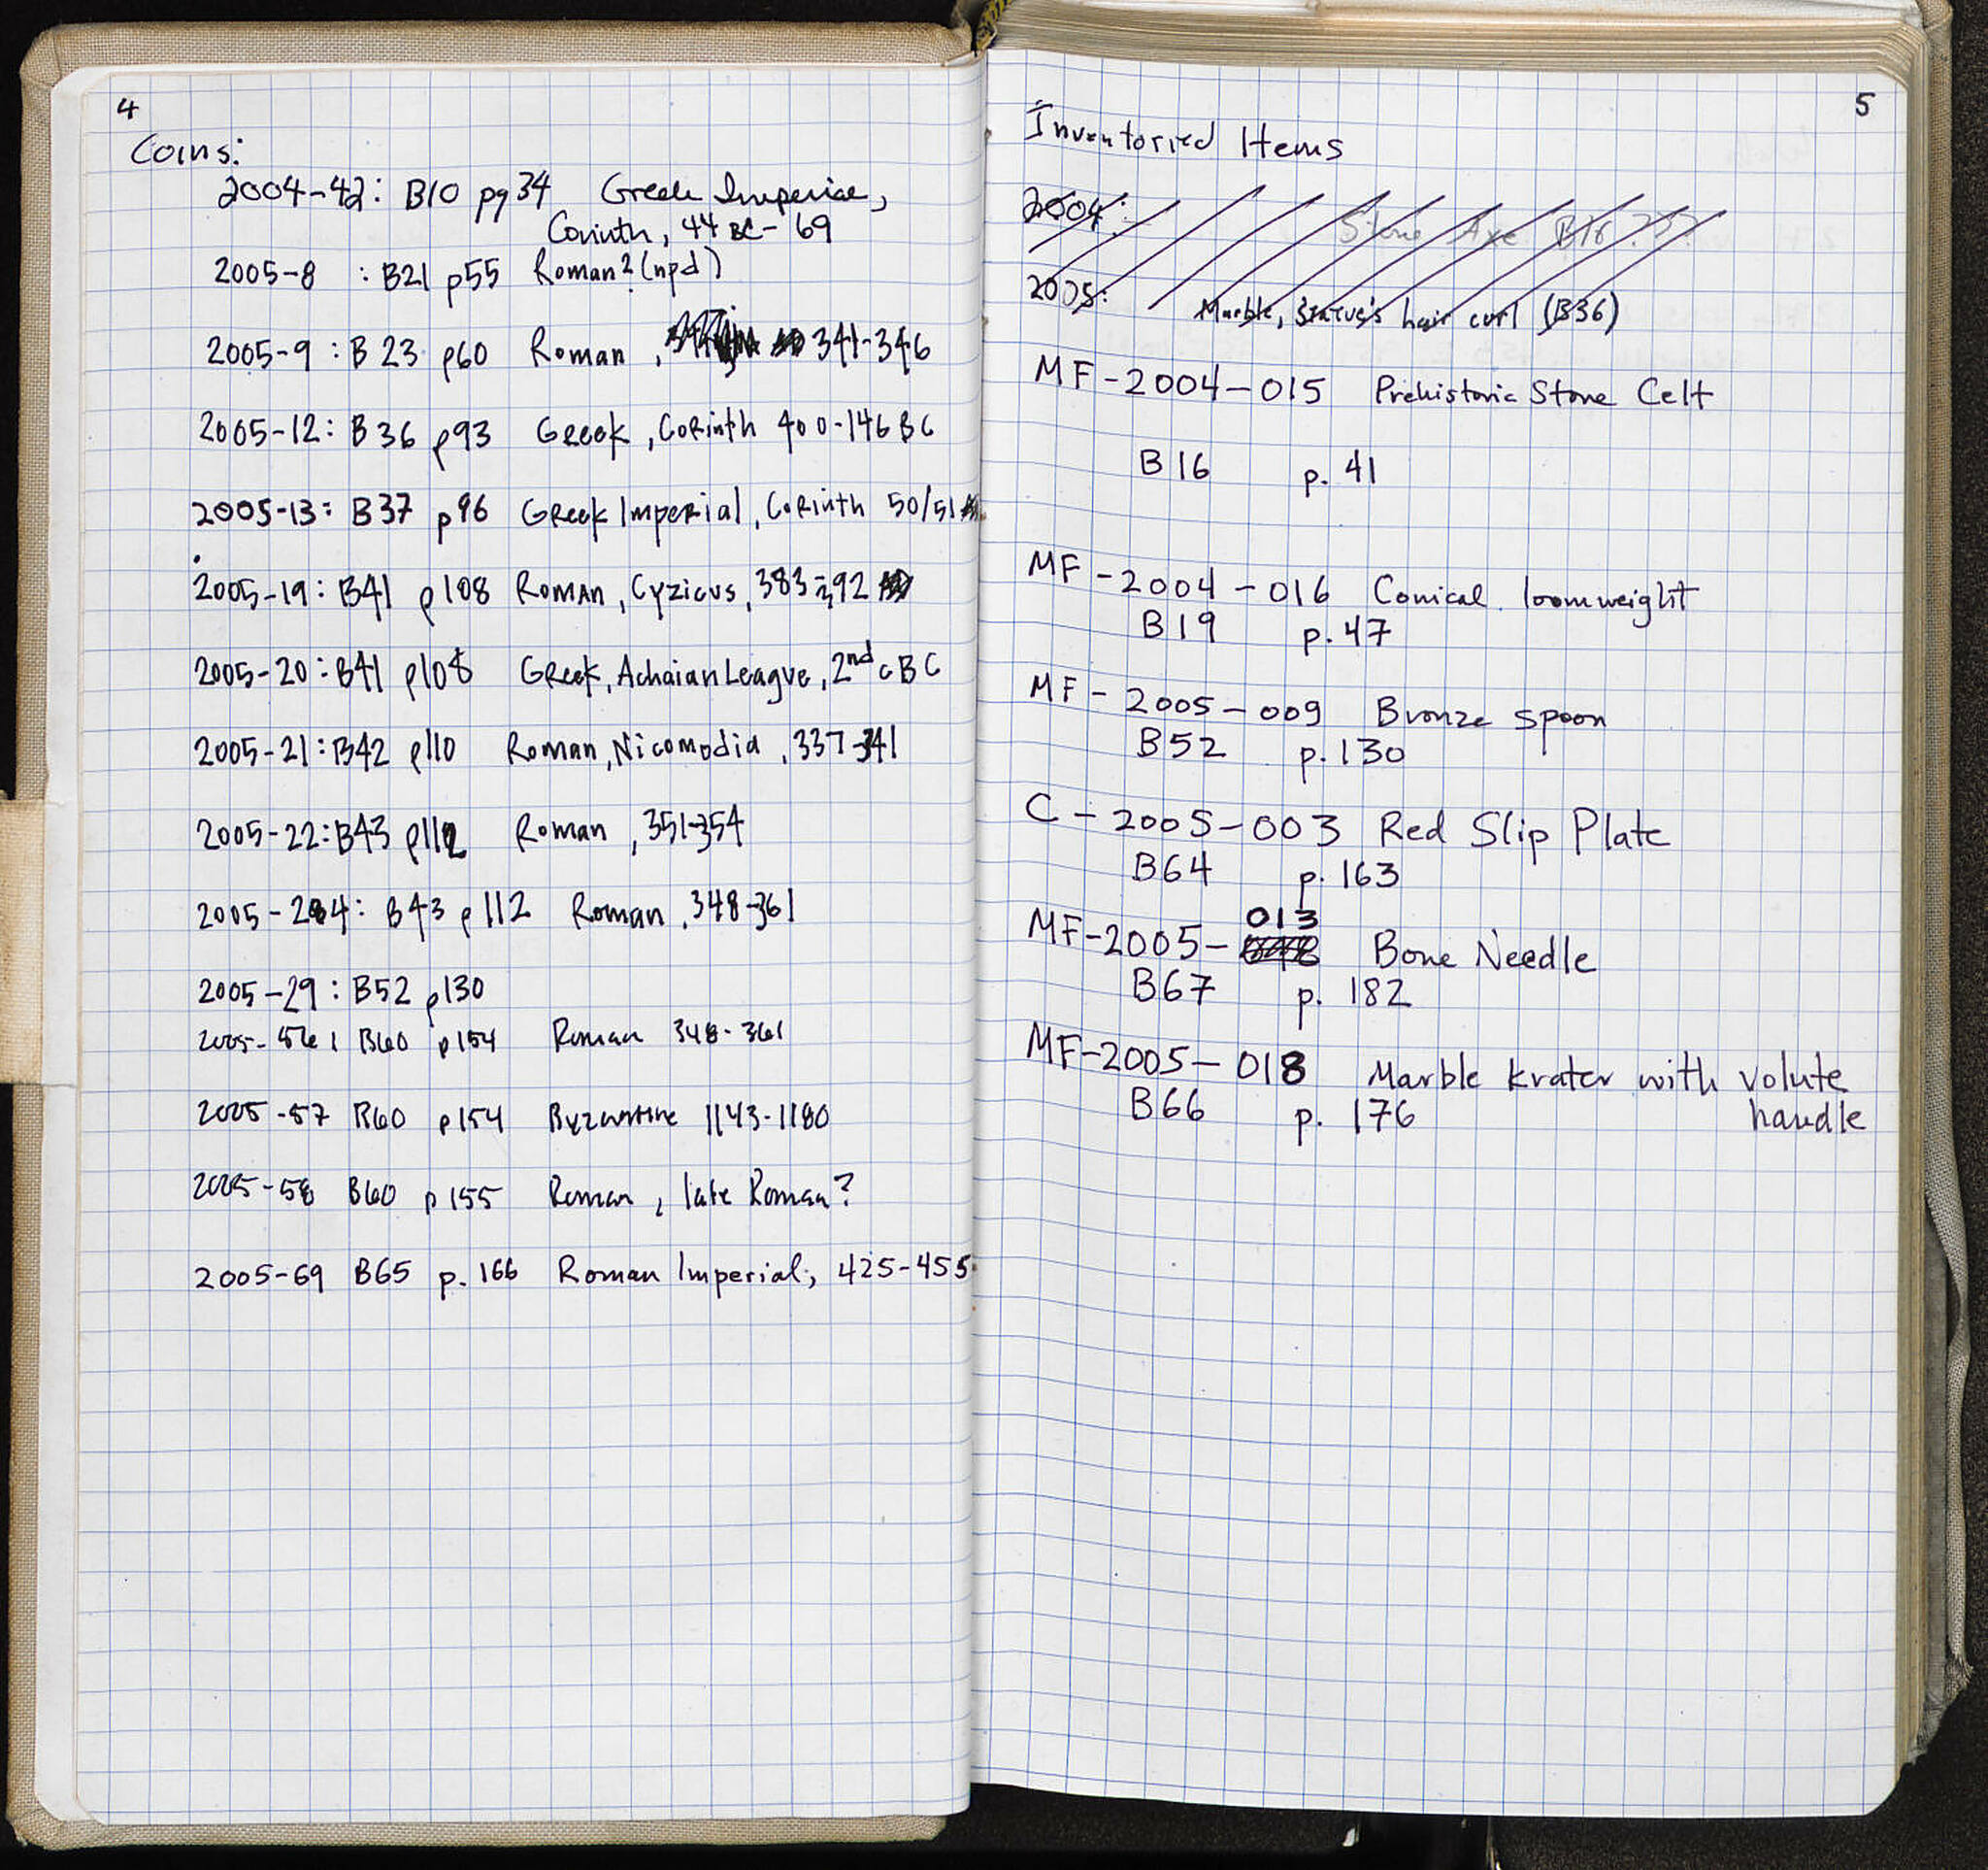 4
Coins:
2004-42: B10 pg 34 Greek Imperial,
Corinth, 44 BC - 69
2005-8 : B21 p55 Roman? (npd)
2005-9 : B 23 p60 Roman, 341-346
2005-12: B 36 p93 Greek, Corinth 400-146 BC
2005-13: B37 p96 Greek Imperial, Corinth 50/51
2005-19: B41 p108 Roman, Cyzicus, 383-392
2005-20: B41 p108 Greek, Achaian League, 2nd c BC
2005-21: B42 p110 Roman, Nicomodia, 337-341
2005-22: B43 p112 Roman, 351-354
2005-24: B43 p112 Roman, 348-361
2005-29: B52 p130
2005-56: B60 p154 Roman 348-361
2005-57 B60 p154 Byzantine 1143-1180
2005-58 B60 p155 Roman, late Roman?
2005-69 B65 p. 166 Roman Imperial, 425-455
5
Inventoried Items
2004: Stone Axe B16
2005: Marble, Statue's hair curl (B36)
MF-2004-015 Prehistoric Stone Celt
B16 p. 41
MF-2004-016 Conical loomweight
B19 p. 47
MF-2005-009 Bronze spoon
B52 p. 130
C-2005-003 Red Slip Plate
B64 p. 163
MF-2005-013 Bone Needle
B67 p. 182
MF-2005-018 Marble krater with volute
handle
B66 p. 176